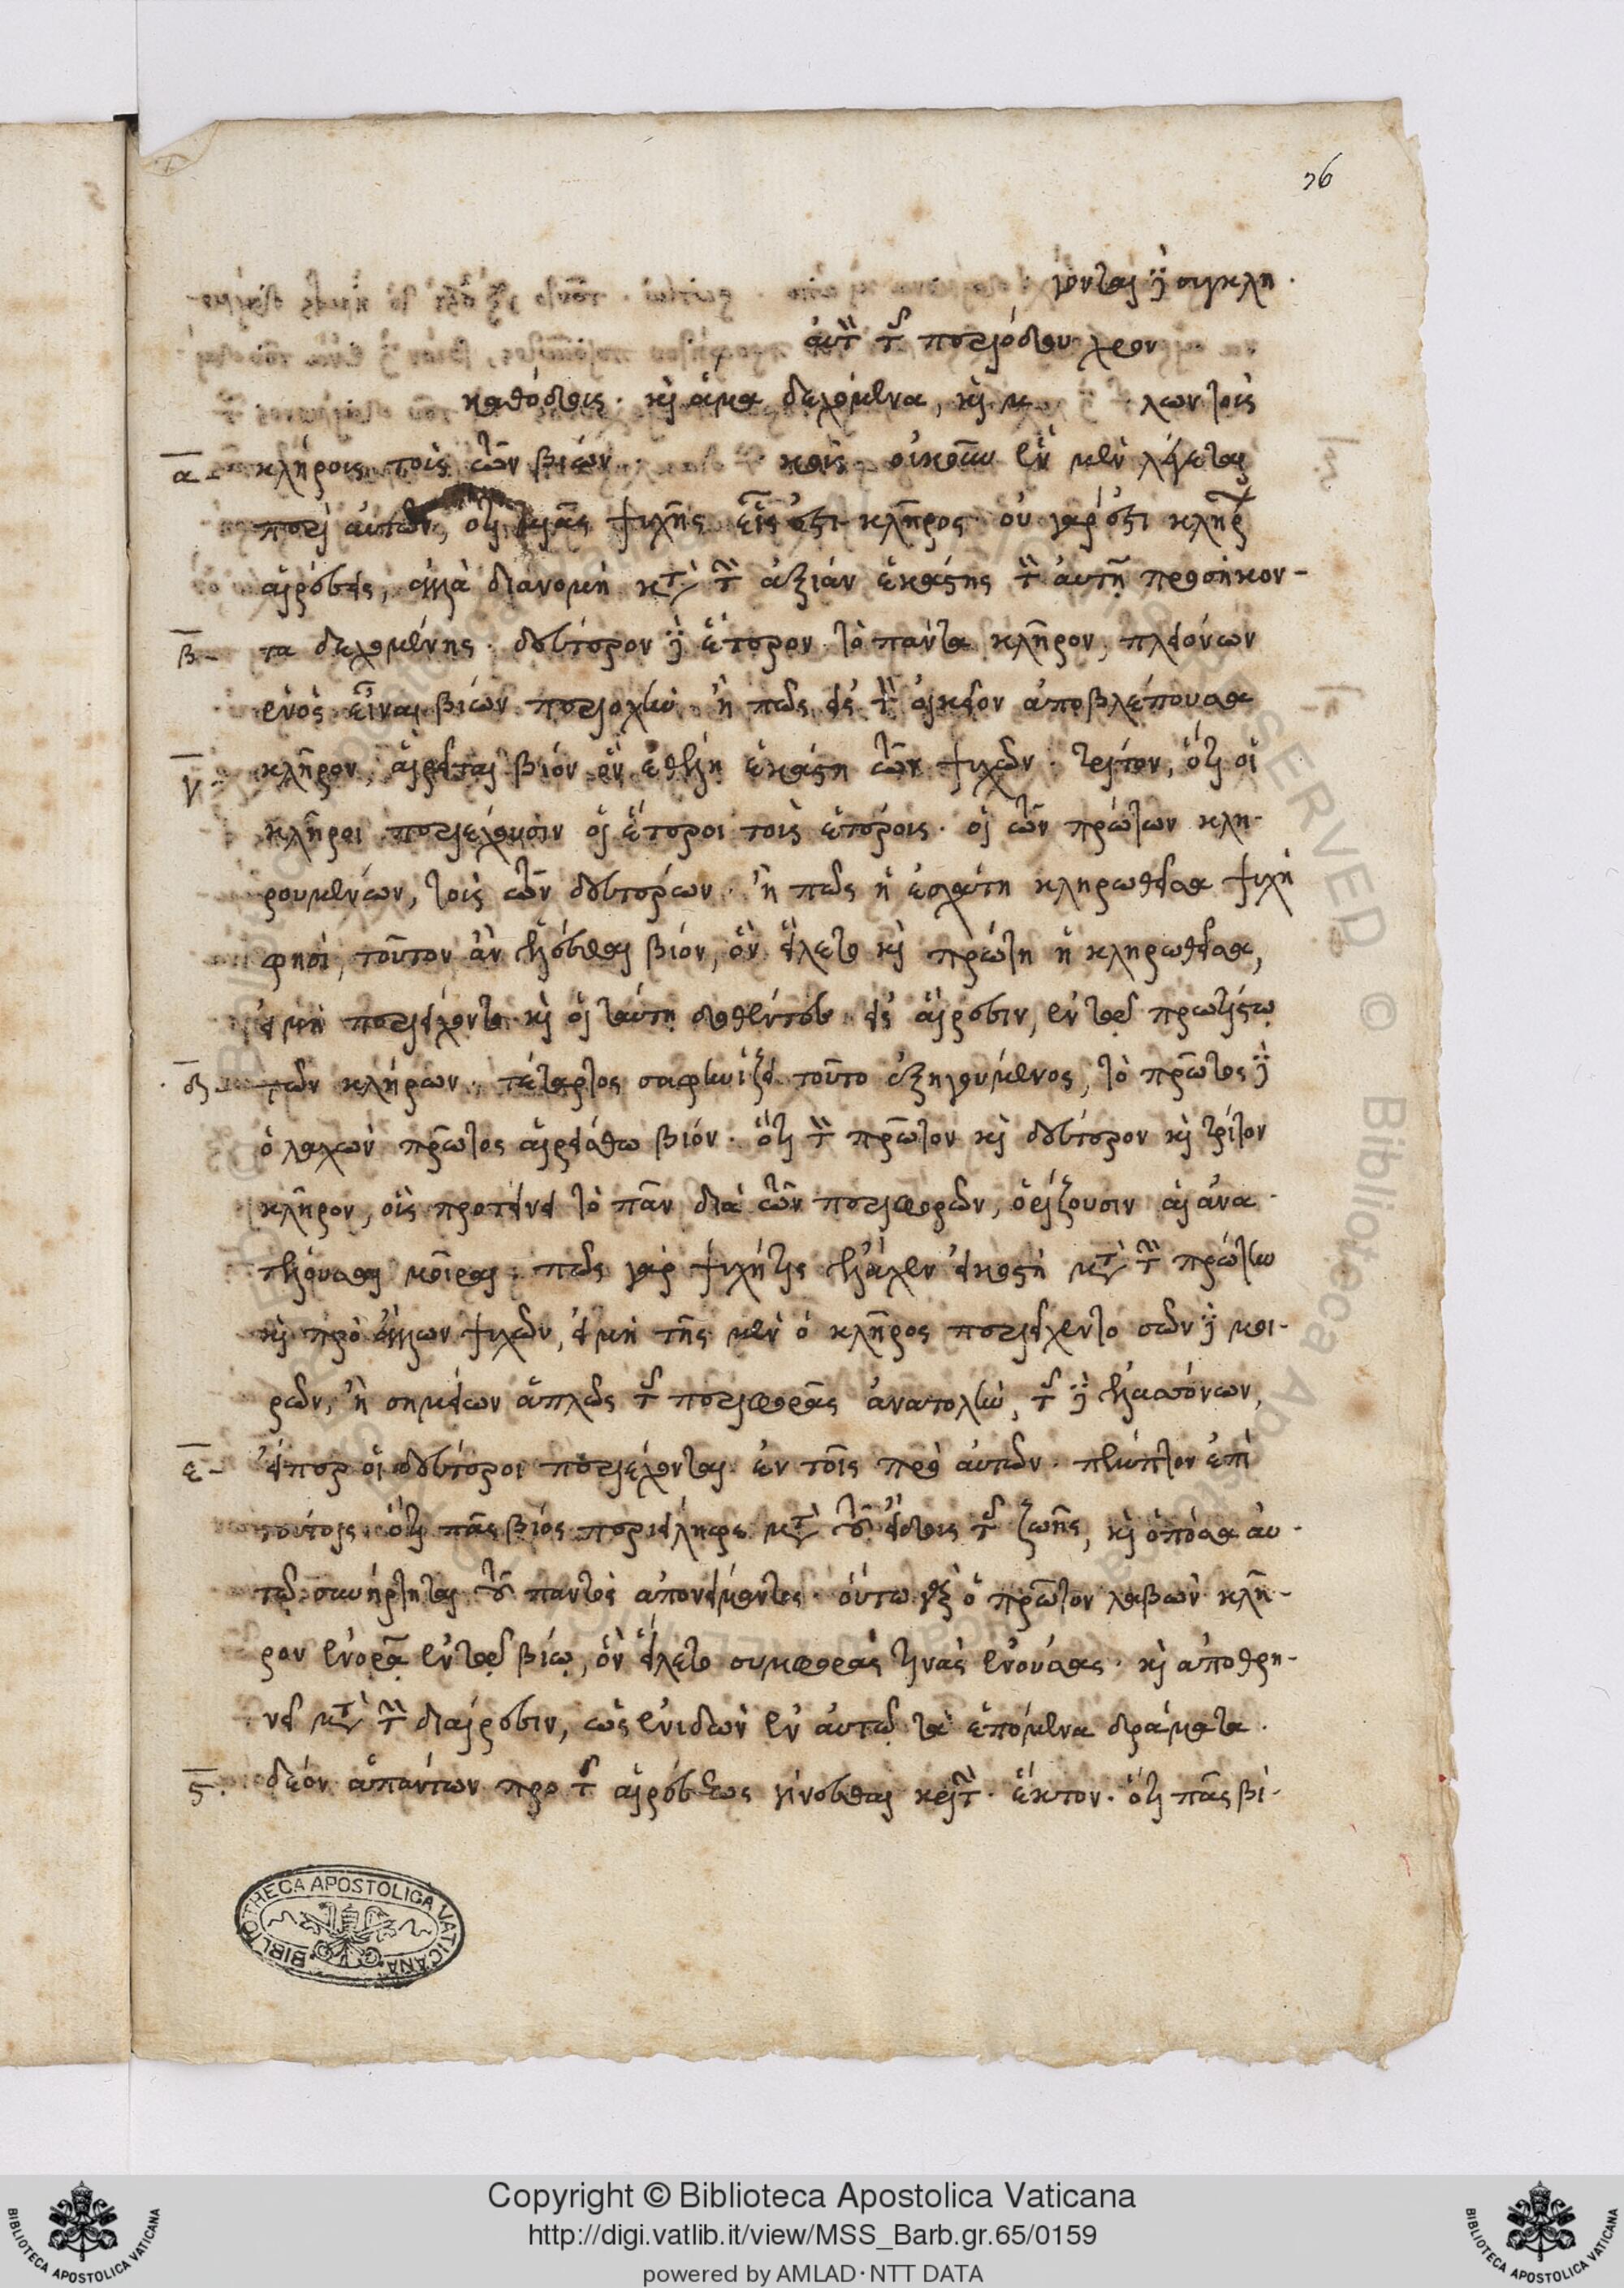 76
γονται δὲ συγκλη
αὐτὴν τῆς περιόδου χρον
καθόδοις. καὶ ἅμα δεχόμενα, καὶ μ λων τοῖς
α κλήροις τοῖς τῶν βιῶν καὶ ἓν μὲν λέγεται
περὶ αὐτῶν, ὅτι μιᾶς ψυχῆς εἷς ἐστι κλῆρος. οὐ γάρ ἐστι κλῆρος
αἱρέσεις, ἀλλὰ διανομὴ κατὰ τὴν ἀξίαν ἑκάστης τὴν αὐτῇ προσήκον-
β τα δεχομένης. δεύτερον δὲ ἕτερον τὸ πάντα κλῆρον, πλειόνων
ἑνὸς εἶναι βίων περιοχήν. ἢ πῶς εἰς τὸν οἰκεῖον ἀποβλέπουσα
γ κλῆρον, αἱρεῖται βίον ὃν ἐθέλῃ ἑκάστη τῶν ψυχῶν. τρίτον, ὅτι οἱ
κλῆροι περιέχουσιν οἱ ἕτεροι τοῖς ἑτέροις. οἱ τῶν πρώτων κλη-
ρουμένων, τοῖς τῶν δευτέρων. ἢ πῶς ἡ ἐσχάτη κληρωθεῖσα ψυχή
φησι, τοῦτον ἂν ἑλέσθαι βίον, ὃν εἵλετο καὶ πρώτη ἡ κληρωθεῖσα,
εἰ μὴ περιείχοντο καὶ οἱ ταύτῃ δοθέντες εἰς αἵρεσιν, ἐν τῷ πρωτίστῳ
δ τῶν κλήρων. τέταρτος σαφηνίζει τοῦτο ἐξηγούμενος, τὸ πρῶτος δὲ
ὁ λαχὼν πρῶτος αἱρείσθω βίον. ὅτι τὸν πρῶτον καὶ δεύτερον καὶ τρίτον
κλῆρον, οἷς προτείνει τὸ πᾶν διὰ τῶν περιφορῶν, ὁρίζουσιν αἱ ἀνα-
τέλλουσαι μοῖραι. πῶς γὰρ ψυχή τις ἔλαχεν εἰκοστὴ μετὰ τὴν πρώτην
καὶ πρὸ ἄλλων ψυχῶν, εἰ μὴ τῆς μὲν ὁ κλῆρος περιείχετο τῶν δὲ μοι-
ρῶν, ἢ σημείων ἁπλῶς τῆς περιφορᾶς ἀνατολήν, τῆς δὲ ἐλασσόνων,
ε εἴπερ οἱ δεύτεροι περιέχονται ἐν τοῖς πρὸ αὐτῶν. πέμπτον ἐπὶ
τούτοις. ὅτι πᾶς βίος περιείληφε μετὰ τοῦ εἴδους τῆς ζωῆς, καὶ ὁπόσα αὐ-
τῷ συνήρτηται τοῦ παντὸς ἀπονείμαντος. οὕτω γὰρ ὁ πρῶτον λαβὼν κλῆ-
ρον ἐνορᾷ ἐν τῷ βίῳ, ὃν εἵλετο συμφοράς τινας ἐνούσας. καὶ ἀποθρη-
νεῖ μετὰ τὴν διαίρεσιν, ὡς ἐνιδὼν ἐν αὐτῷ τὰ ἑπόμενα δράματα.
ς δέον ἁπάντων πρὸ τῆς αἱρέσεως γίνεσθαι κριτήν. ἕκτον. ὅτι πᾶς βί-
BIBLIOTHECA APOSTOLICA VATICANA
Copyright © Biblioteca Apostolica Vaticana
http://digi.vatlib.it/view/MSS_Barb.gr.65/0159
powered by AMLAD·NTT DATA